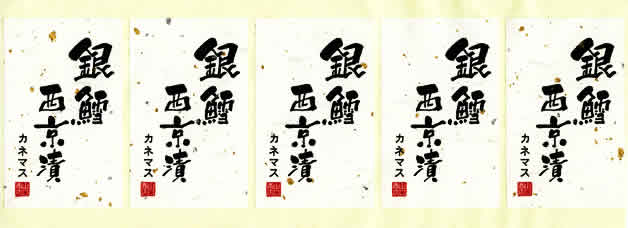 銀鱈
西京漬
カネマス
銀鱈
西京漬
カネマス
銀鱈
西京漬
カネマス
銀鱈
西京漬
カネマス
銀鱈
西京漬
カネマス